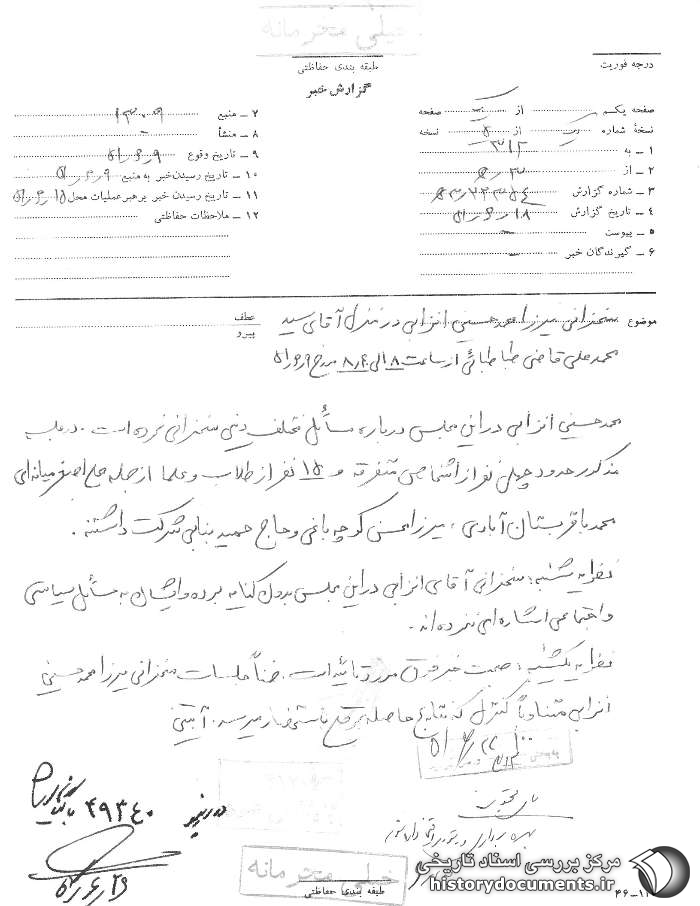 خیلی محرمانه
طبقه بندی حفاظتی
درجه فوریت
گزارش خبر
صفحه یکم از صفحه
نسخهٔ شماره از ۵ نسخه
۱ ـ به ۳۱۲
۲ ـ از
۳ ـ شماره گزارش
۴ ـ تاریخ گزارش ۵۱٫۶٫۱۸
۵ ـ پیوست
۶ ـ گیرندگان خبر
۷ ـ منبع ۱۳۰۹
۸ ـ منشأ
۹ ـ تاریخ وقوع ۵۱٫۶٫۹
۱۰ ـ تاریخ رسیدن خبر به منبع ۵۱٫۶٫۹
۱۱ ـ تاریخ رسیدن خبر برهبر عملیات محل ۵۱٫۶٫۱۵
۱۲ ـ ملاحظات حفاظتی
عطف
پیرو
موضوع سخنرانی میرزا محمد حسین انزابی در منزل آقای سید
محمد علی قاضی طباطبائی از ساعت ۱۸ الی ۸٫۴۰ مورخ ۵۱٫۶٫۹
محمد حسین انزابی در این مجلس درباره مسائل مختلف دینی سخنرانی نموده است. در جلسه
مذکور حدود چهل نفر از اشخاص متفرقه و ۱۵ نفر از طلاب و علما از جمله حاج اصغر میانه‌ای
محمد باقر بستان آبادی، میرزا محسن کوچه باغی و حاج حمید بنابی شرکت داشتند.
نظریه شنبه: سخنرانی آقای انزابی در این مجلس بدون کنایه بوده و ایشان به مسائل سیاسی
و اجتماعی اشاره‌ای ننموده‌اند.
نظریه یکشنبه: صحت خبر فوق مورد تائید است. ضمناً جلسات سخنرانی میرزا محمد حسین
انزابی متناوباً کنترل که نتایج حاصله بموقع باستحضار میرسد. آبتین
۴۹۳۴۰
خیلی محرمانه
طبقه بندی حفاظتی
مرکز بررسی اسناد تاریخی
historydocuments.ir